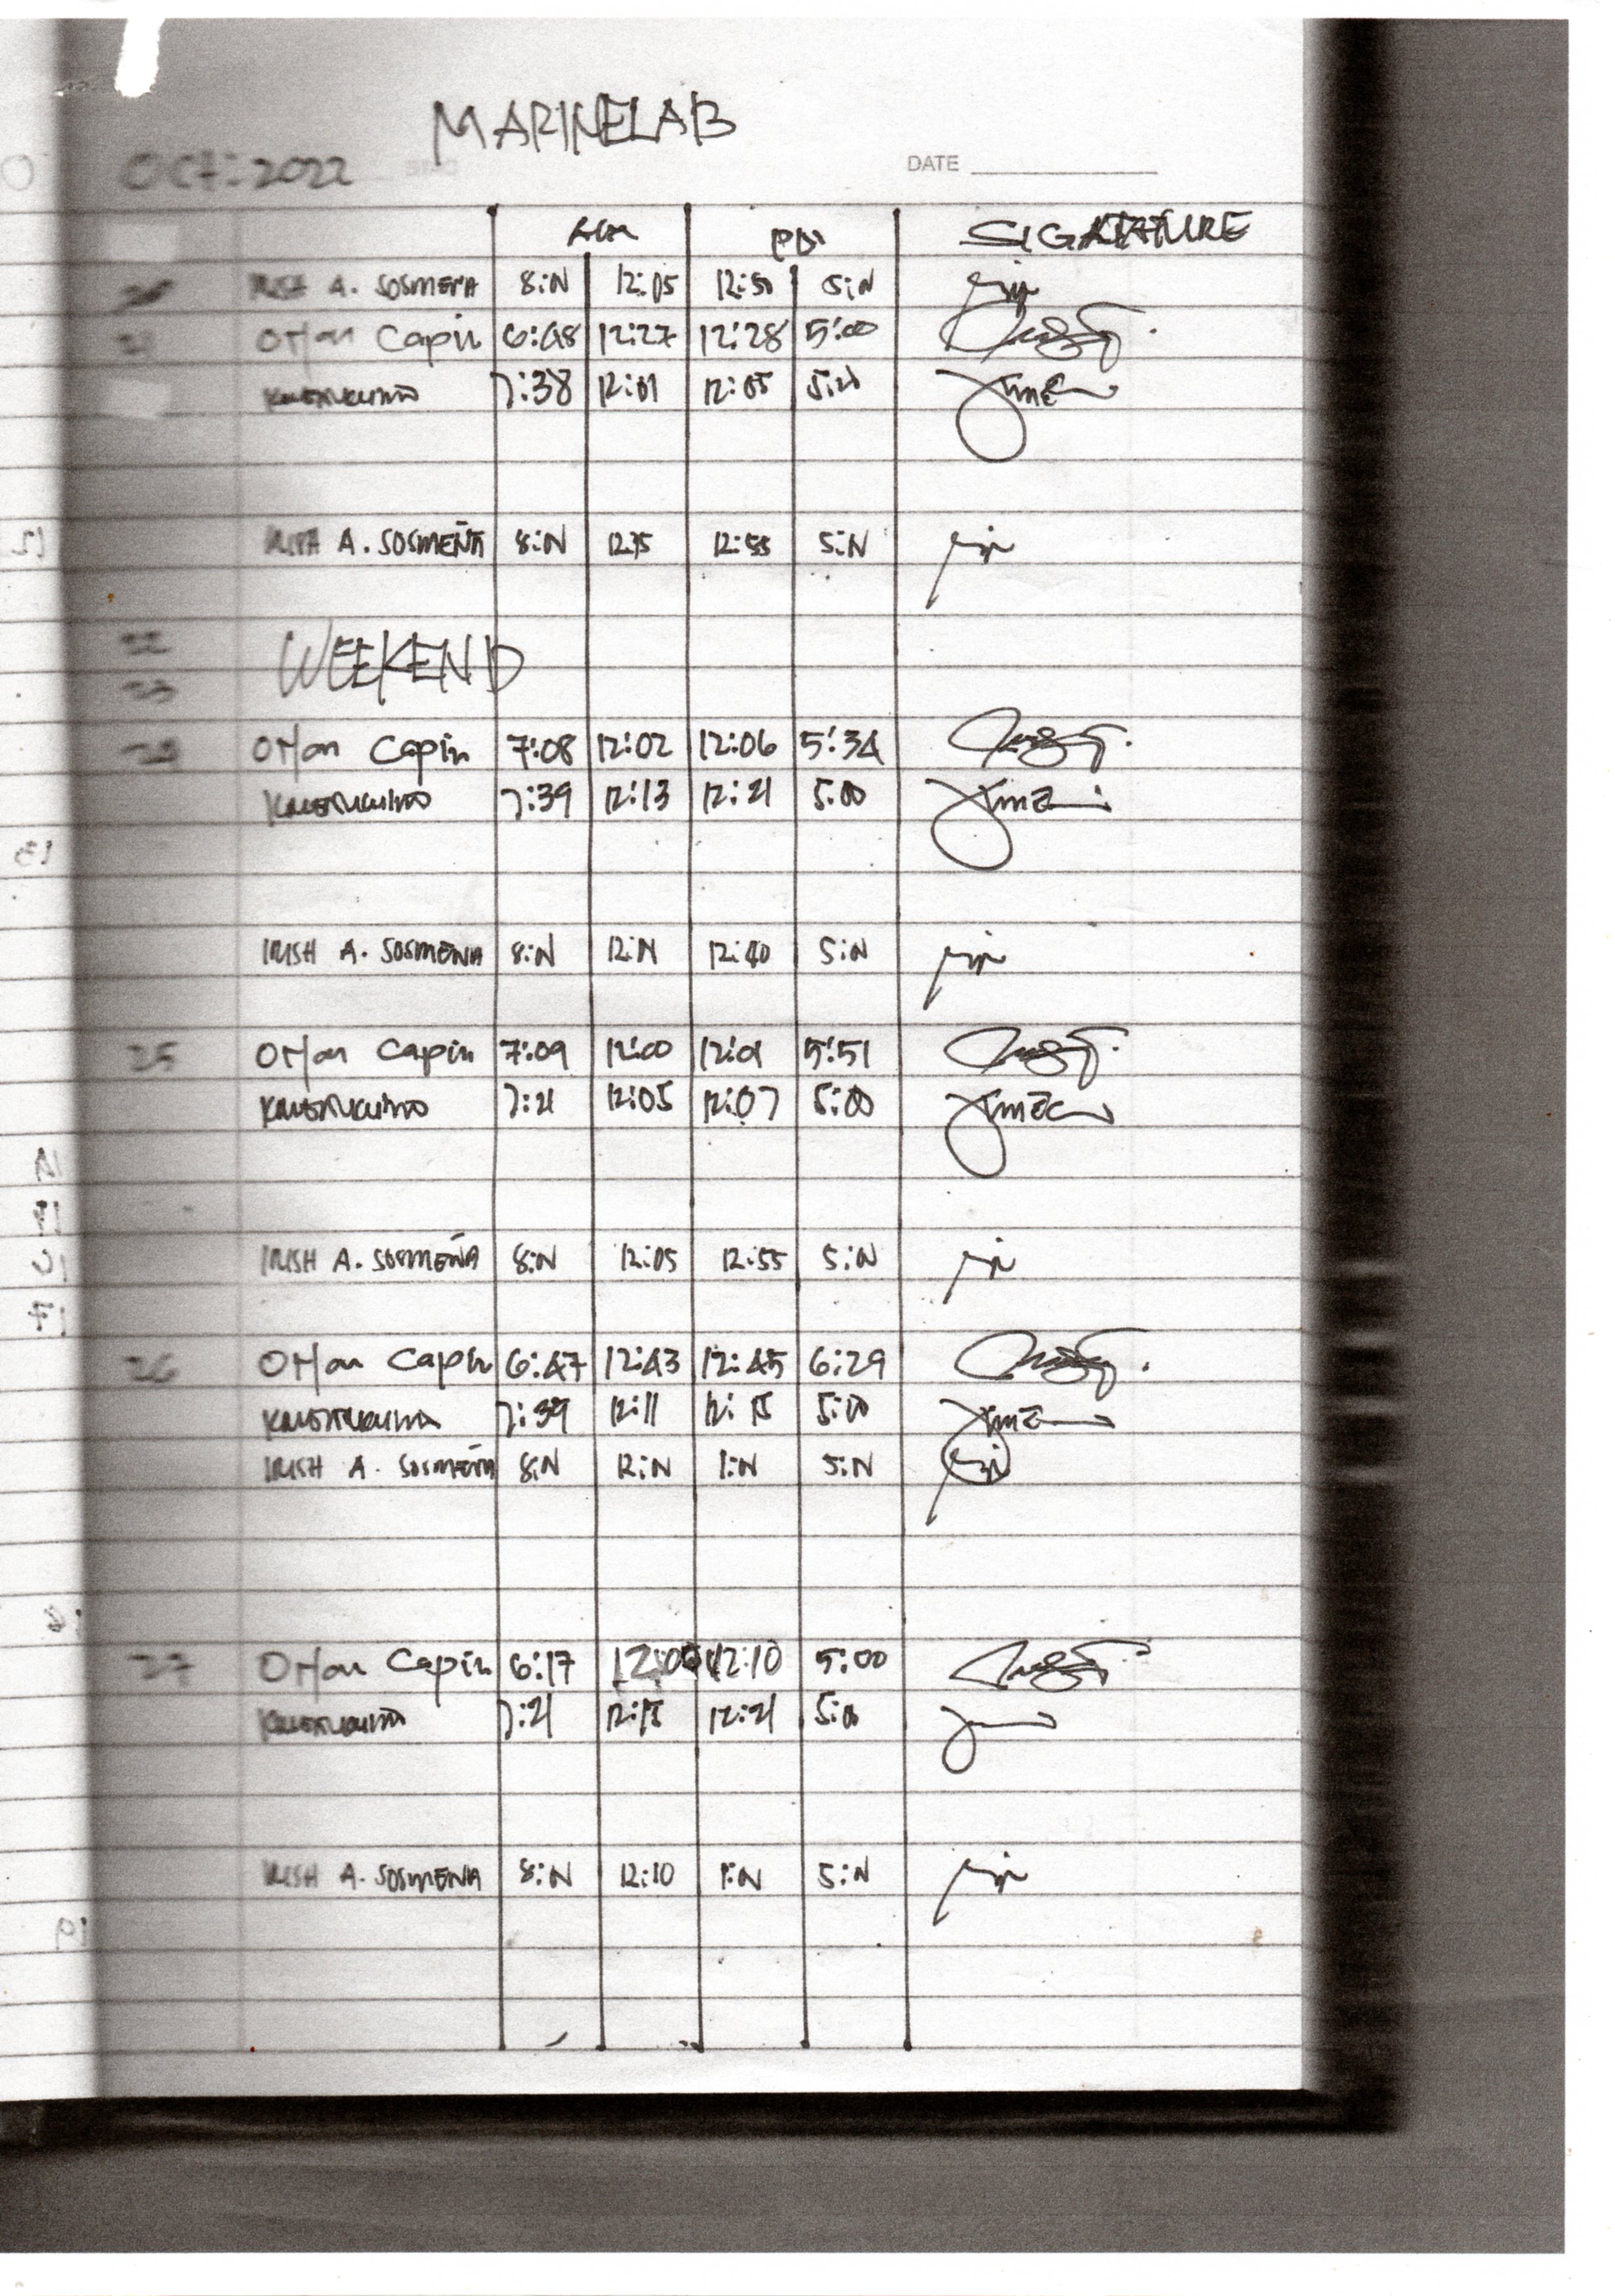 MARINELAB
OCT. 2022
DATE
AM PM SIGNATURE
A. SOSMEÑA 8:N 12:05 12:50 5:N
21 Orfan Capin 6:48 12:27 12:28 5:00
7:38 12:01 12:05
A. SOSMEÑA 8:N 12:15 12:55 5:N
22
WEEKEND
23
24 Orfan Capin 7:08 12:02 12:06 5:34
7:39 12:13 12:21 5:00
IRISH A. SOSMEÑA 8:N 12:N 12:40 5:N
25 Orfan Capin 7:09 12:00 12:01 5:51
7:21 12:05 12:07 5:00
IRISH A. SOSMEÑA 8:N 12:05 12:55 5:N
26 Orfan Capin 6:47 12:43 12:45 6:29
7:39 12:11 12:15 5:00
IRISH A. SOSMEÑA 8:N 12:N 1:N 5:N
27 Orfan Capin 6:17 12:00 12:10 5:00
7:21 12:15 12:21 5:00
IRISH A. SOSMEÑA 8:N 12:10 1:N 5:N